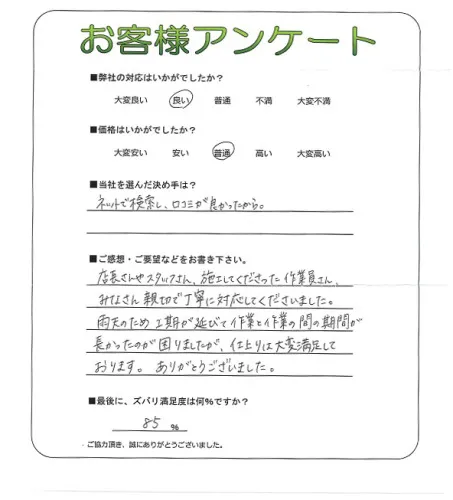 お客様アンケート
■弊社の対応はいかがでしたか？
大変良い　良い　普通　不満　大変不満
■価格はいかがでしたか？
大変安い　安い　普通　高い　大変高い
■当社を選んだ決め手は？
ネットで検索し、口コミが良かったから。
■ご感想・ご要望などをお書き下さい。
店長さんやスタッフさん、施工してくださった作業員さん、
みなさん親切で丁寧に対応してくださいました。
雨天のため工期が延びて作業と作業の間の期間が
長かったのが困りましたが、仕上りは大変満足して
おります。ありがとうございました。
■最後に、ズバリ満足度は何%ですか？
85 %
ご協力頂き、誠にありがとうございました。